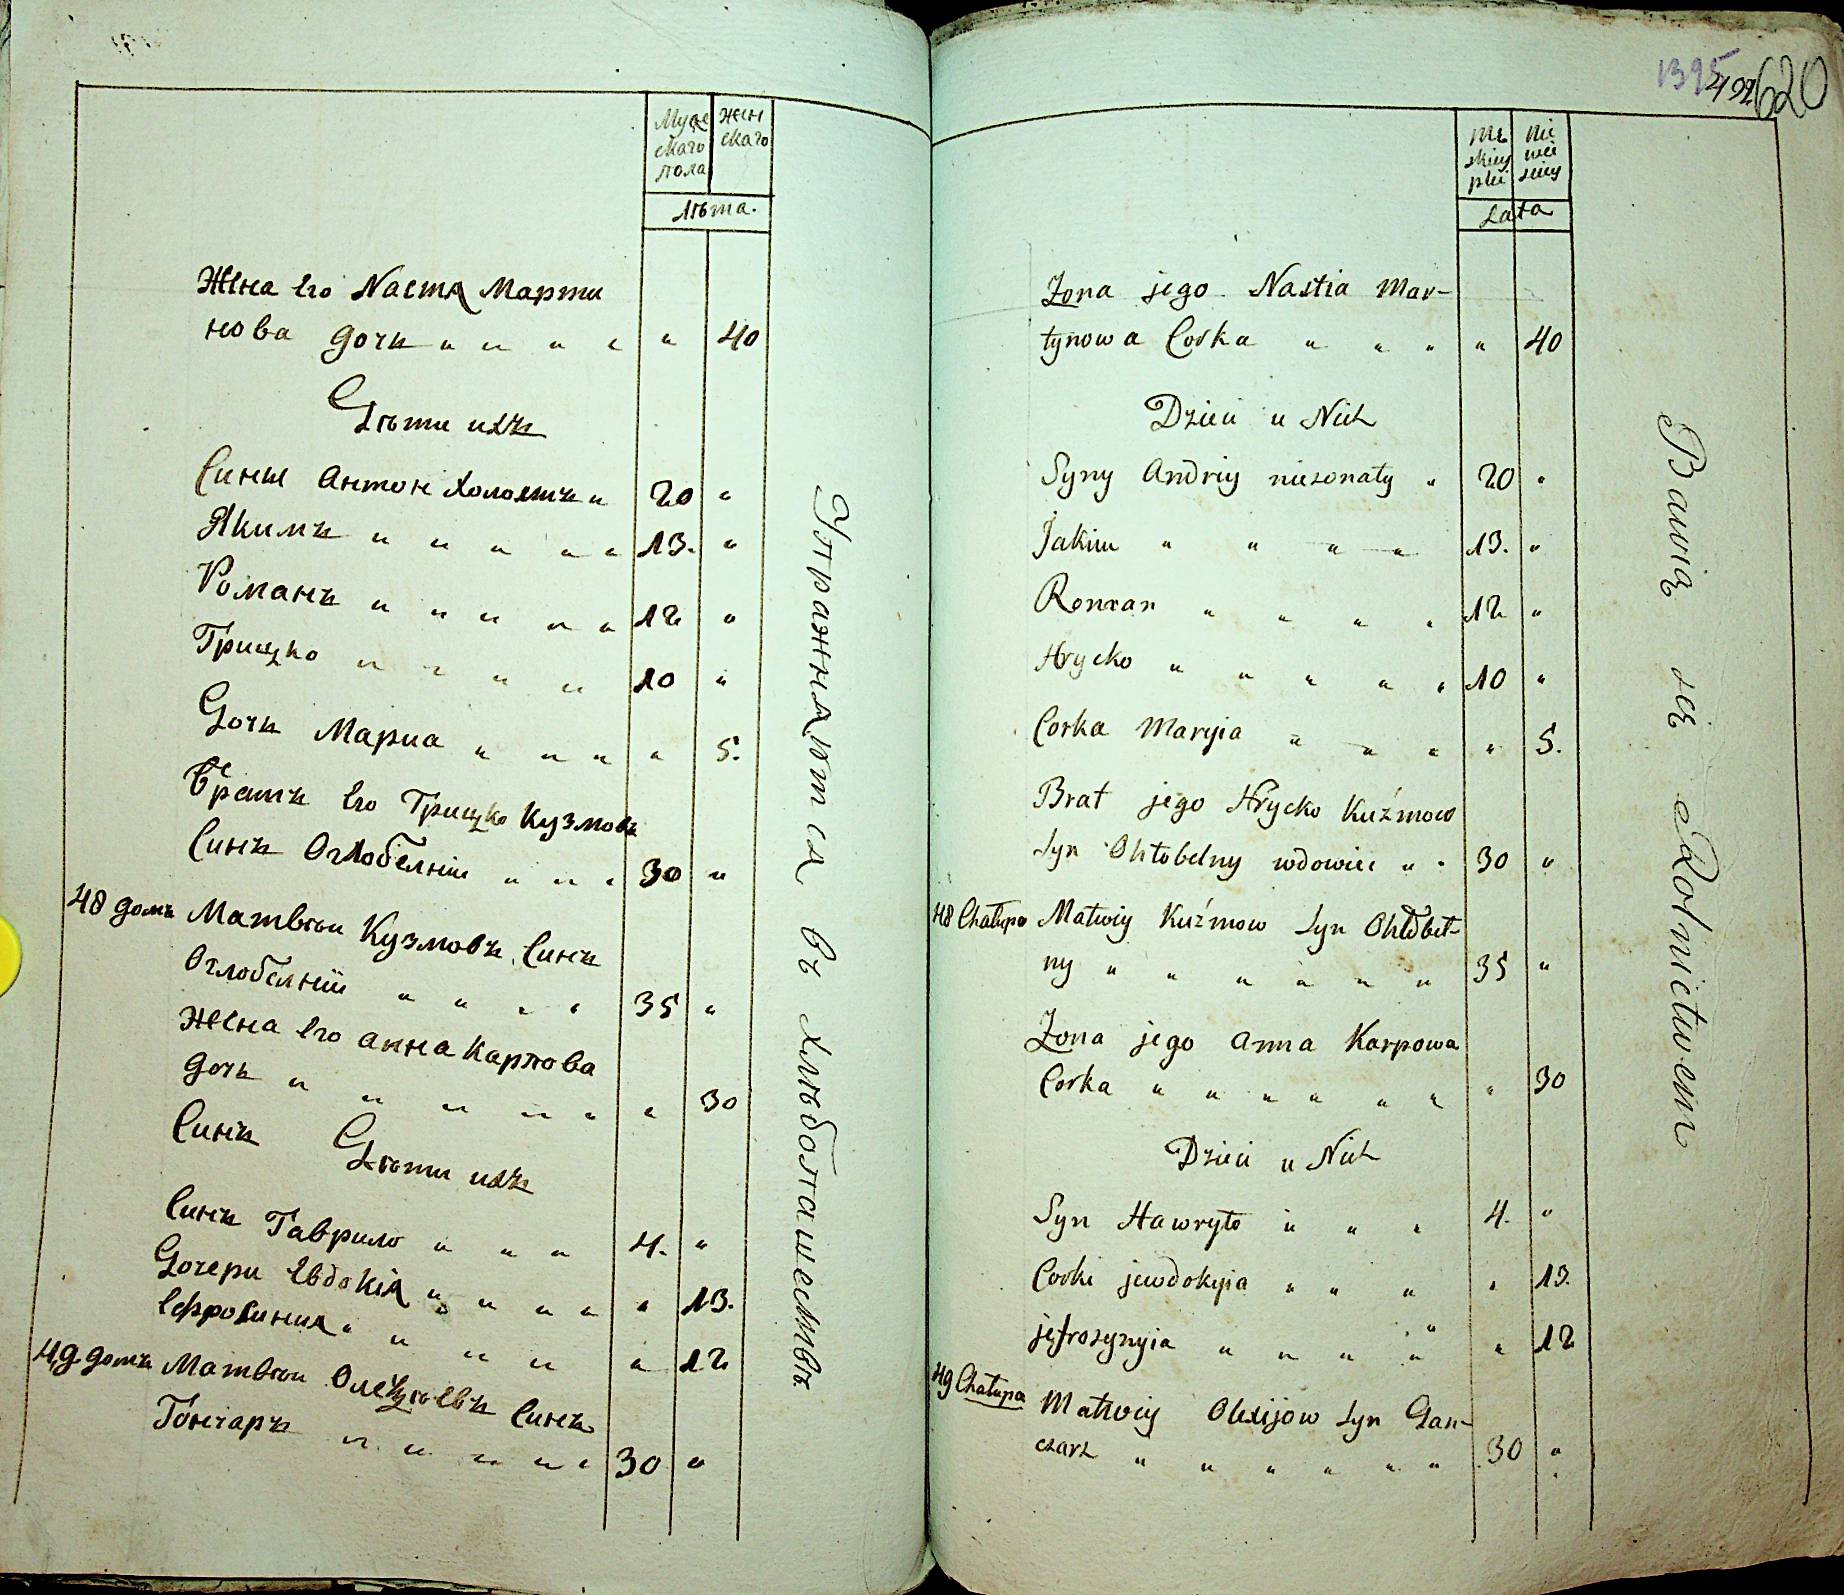 Муже
скаго
пола
жен
скаго
Лѣта.
Жена его Nастѧ Марти
нова дочъ " " " " " 40
Дѣти ихъ
Синъ Антон холостъ " 20 "
Якимъ " " " " " 13. "
Романъ " " " " " 12 "
Грицко " " " " 10 "
Дочъ Мариа " " " " 5.
Братъ его Грицко Кузмовъ
Синъ Оглобелній " " " 30 "
48 домъ Матвѣи Кузмовъ Синъ
Оглобелній " " " " 35 "
Жена его Анна Карпова
дочъ " " " " " " 30
Синъ Дѣти ихъ
Синъ Гаврило " " " 4. "
Дочери Евдокіѧ " " " " " 13.
Ефросиниѧ " " " " " 12
49 домъ Матвѣи Олеѯѣевъ Синъ
Гончаръ " " " " " 30 "
Упражнѧютсѧ въ хлѣбопашествѣ
1395 492 620
mę
skiey
płci
nie
wie
sciey
Lata
Zona jego Nastia Mar-
tynowa Corka " " " " 40
Dzieci u Nich
Syny Andriy niezonaty " 20 "
Jakim " " " " 13. "
Roman " " " " 12 "
Hrycko " " " " " 10 "
Corka Maryia " " " " 5.
Brat jego Hrycko Kuźmow
Syn Ohłobelny wdowiec " " 30 "
48 Chałupa Matwiy Kuźmow Syn Ohłobel-
ny " " " " " " 35 "
Zona jego Anna Karpowa
Corka " " " " " " " 30
Dzieci u Nich
Syn Hawryło " " " 4. "
Corki jewdokyia " " " " 13.
jefrosynyia " " " " " 12
49 Chałupa Matwiy Olexijow Syn Gan-
czarz " " " " " " 30 "
Bawią się Rolnictwem